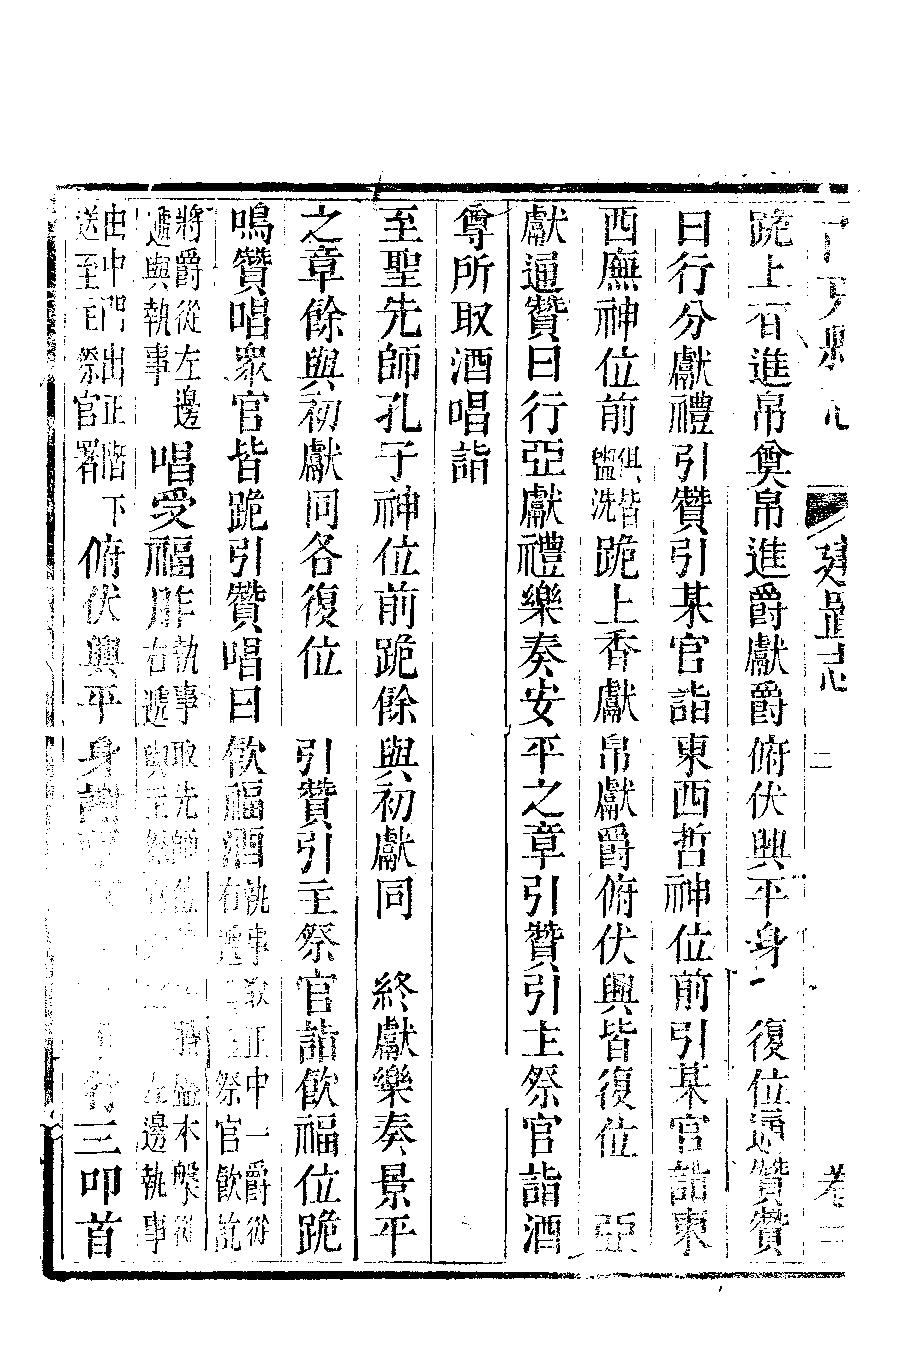 建置志 卷二
跪上香進帛奠帛進爵獻爵俯伏興平身 復位通贊贊
曰行分獻禮引贊引某官詣東西哲神位前引某官詣東
西廡神位前俱皆盥洗跪上香獻帛獻爵俯伏興皆復位 亞
獻通贊曰行亞獻禮樂奏安平之章引贊引主祭官詣酒
尊所取酒唱詣
至聖先師孔子神位前跪餘與初獻同 終獻樂奏景平
之章餘與初獻同各復位 引贊引主祭官詣飲福位跪
鳴贊唱眾官皆跪引贊唱曰飲福酒執事取正中一爵從右遞主祭官飲訖
將爵從左邊遞與執事唱受福胙執事取先師右遞與主祭木盤從左邊執事
由中門出正階下送至主祭官署俯伏興平身三叩首